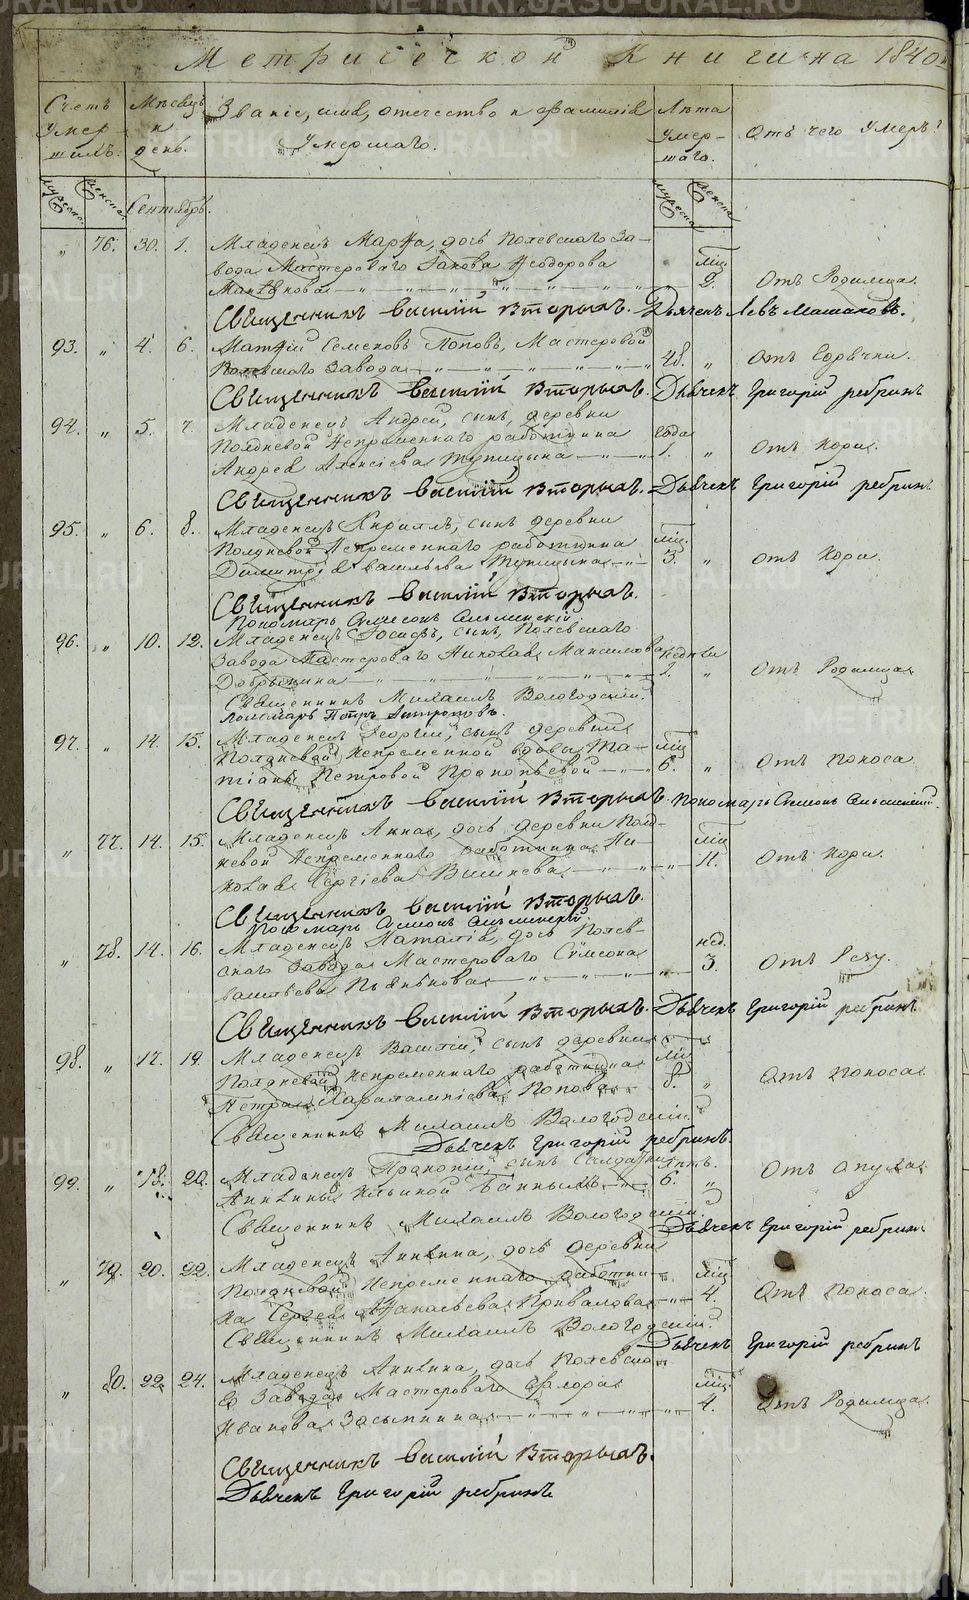 Метрической Книги на 1840
Счетъ Умершихъ. Мѣсяцъ и день. Званіе, имя, отечество и фамилія Умершаго. Лѣта Умершаго. Отъ чего Умеръ?
мужеска. женска. Сентябрь. мужеска женска
" 76. 30. 1. Младенецъ Марѳа, дочь Полевскаго За-
вода Мастероваго Іакова Ѳеодорова мѣс.
2. Отъ Родимца.
Священникъ Василій Вторыхъ. Дьячекъ Левъ
93. " 4. 6. Матѳій Семеновъ Поповъ, Мастеровой
Полевскаго Завода 48. " Отъ Горячки.
Священникъ Василій Вторыхъ. Дьячекъ Григорій Ребринъ
94. " 5. 7. Младенецъ Андрей, сынъ, деревни
Полдневой Непременнаго работника года
Андрея Алексіева Тупицына 1. " Отъ Кори.
Священникъ Василій Вторыхъ. Дьячекъ Григорій Ребринъ
95. " 6. 8. Младенецъ Кириллъ, сынъ деревни
Полдневой Непременнаго работника мѣс.
Димитрія Васильева Тупицына 3. " Отъ Кори.
Священникъ Василій Вторыхъ.
Пономарь Симеонъ
96. " 10. 12. Младенецъ Іосифъ, сынъ, Полевскаго
Завода Мастероваго Николая Максимова
Добрынина " Отъ Родимца
Священникъ Михаилъ Вологодскій.
Пономарь Петръ
97. " 14. 15. Младенецъ Георгій, сынъ деревни
Полдневой Непременной вдовы Та- мѣс
тіаны Петровой Прокопьевой 6. " Отъ Поноса
Священникъ Василій Вторыхъ. Пономарь Симеонъ
" 77. 14. 15. Младенецъ Анна, дочь деревни Полд-
невой Непременнаго работника Ни- мѣс
колая Сергіева Вишнева 11. Отъ Кори.
Священникъ Василій Вторыхъ.
Пономарь Симеонъ
" 78. 14. 16. Младенецъ Наталія, дочь Полев-
скаго Завода Мастероваго Симеона нед.
Васильева Пьянкова 3. Отъ Резу.
Священникъ Василій Вторыхъ. Дьячекъ Григорій Ребринъ
98. " 17. 19. Младенецъ Василій, сынъ деревни
Полдневой Непременнаго работника мѣс
Петра Харалампіева Попова 8. " Отъ Поноса
Священникъ Михаилъ Вологодскій.
Дьячекъ Григорій Ребринъ.
99. " 18. 20. Младенецъ Прокопій, сынъ Солдатки лѣтъ. Отъ Опухоли
Ильиной Банныхъ 6. "
Священникъ Михаилъ Вологодскій.
Дьячекъ Григорій Ребринъ
" 79. 20. 22. Младенецъ Акилина, дочь деревни
Полдневой Непременнаго работни- мѣс
ка Сергея Приваловa 4. Отъ Поноса.
Священникъ Михаилъ Вологодскій.
Дьячекъ Григорій Ребринъ
" 80. 22. 24. Младенецъ Акилина, дочь Полевска-
го Завода Мастероваго мѣс.
Иванова Засыпкина 4. Отъ Родимца.
Священникъ Василій Вторыхъ.
Дьячекъ Григорій Ребринъ